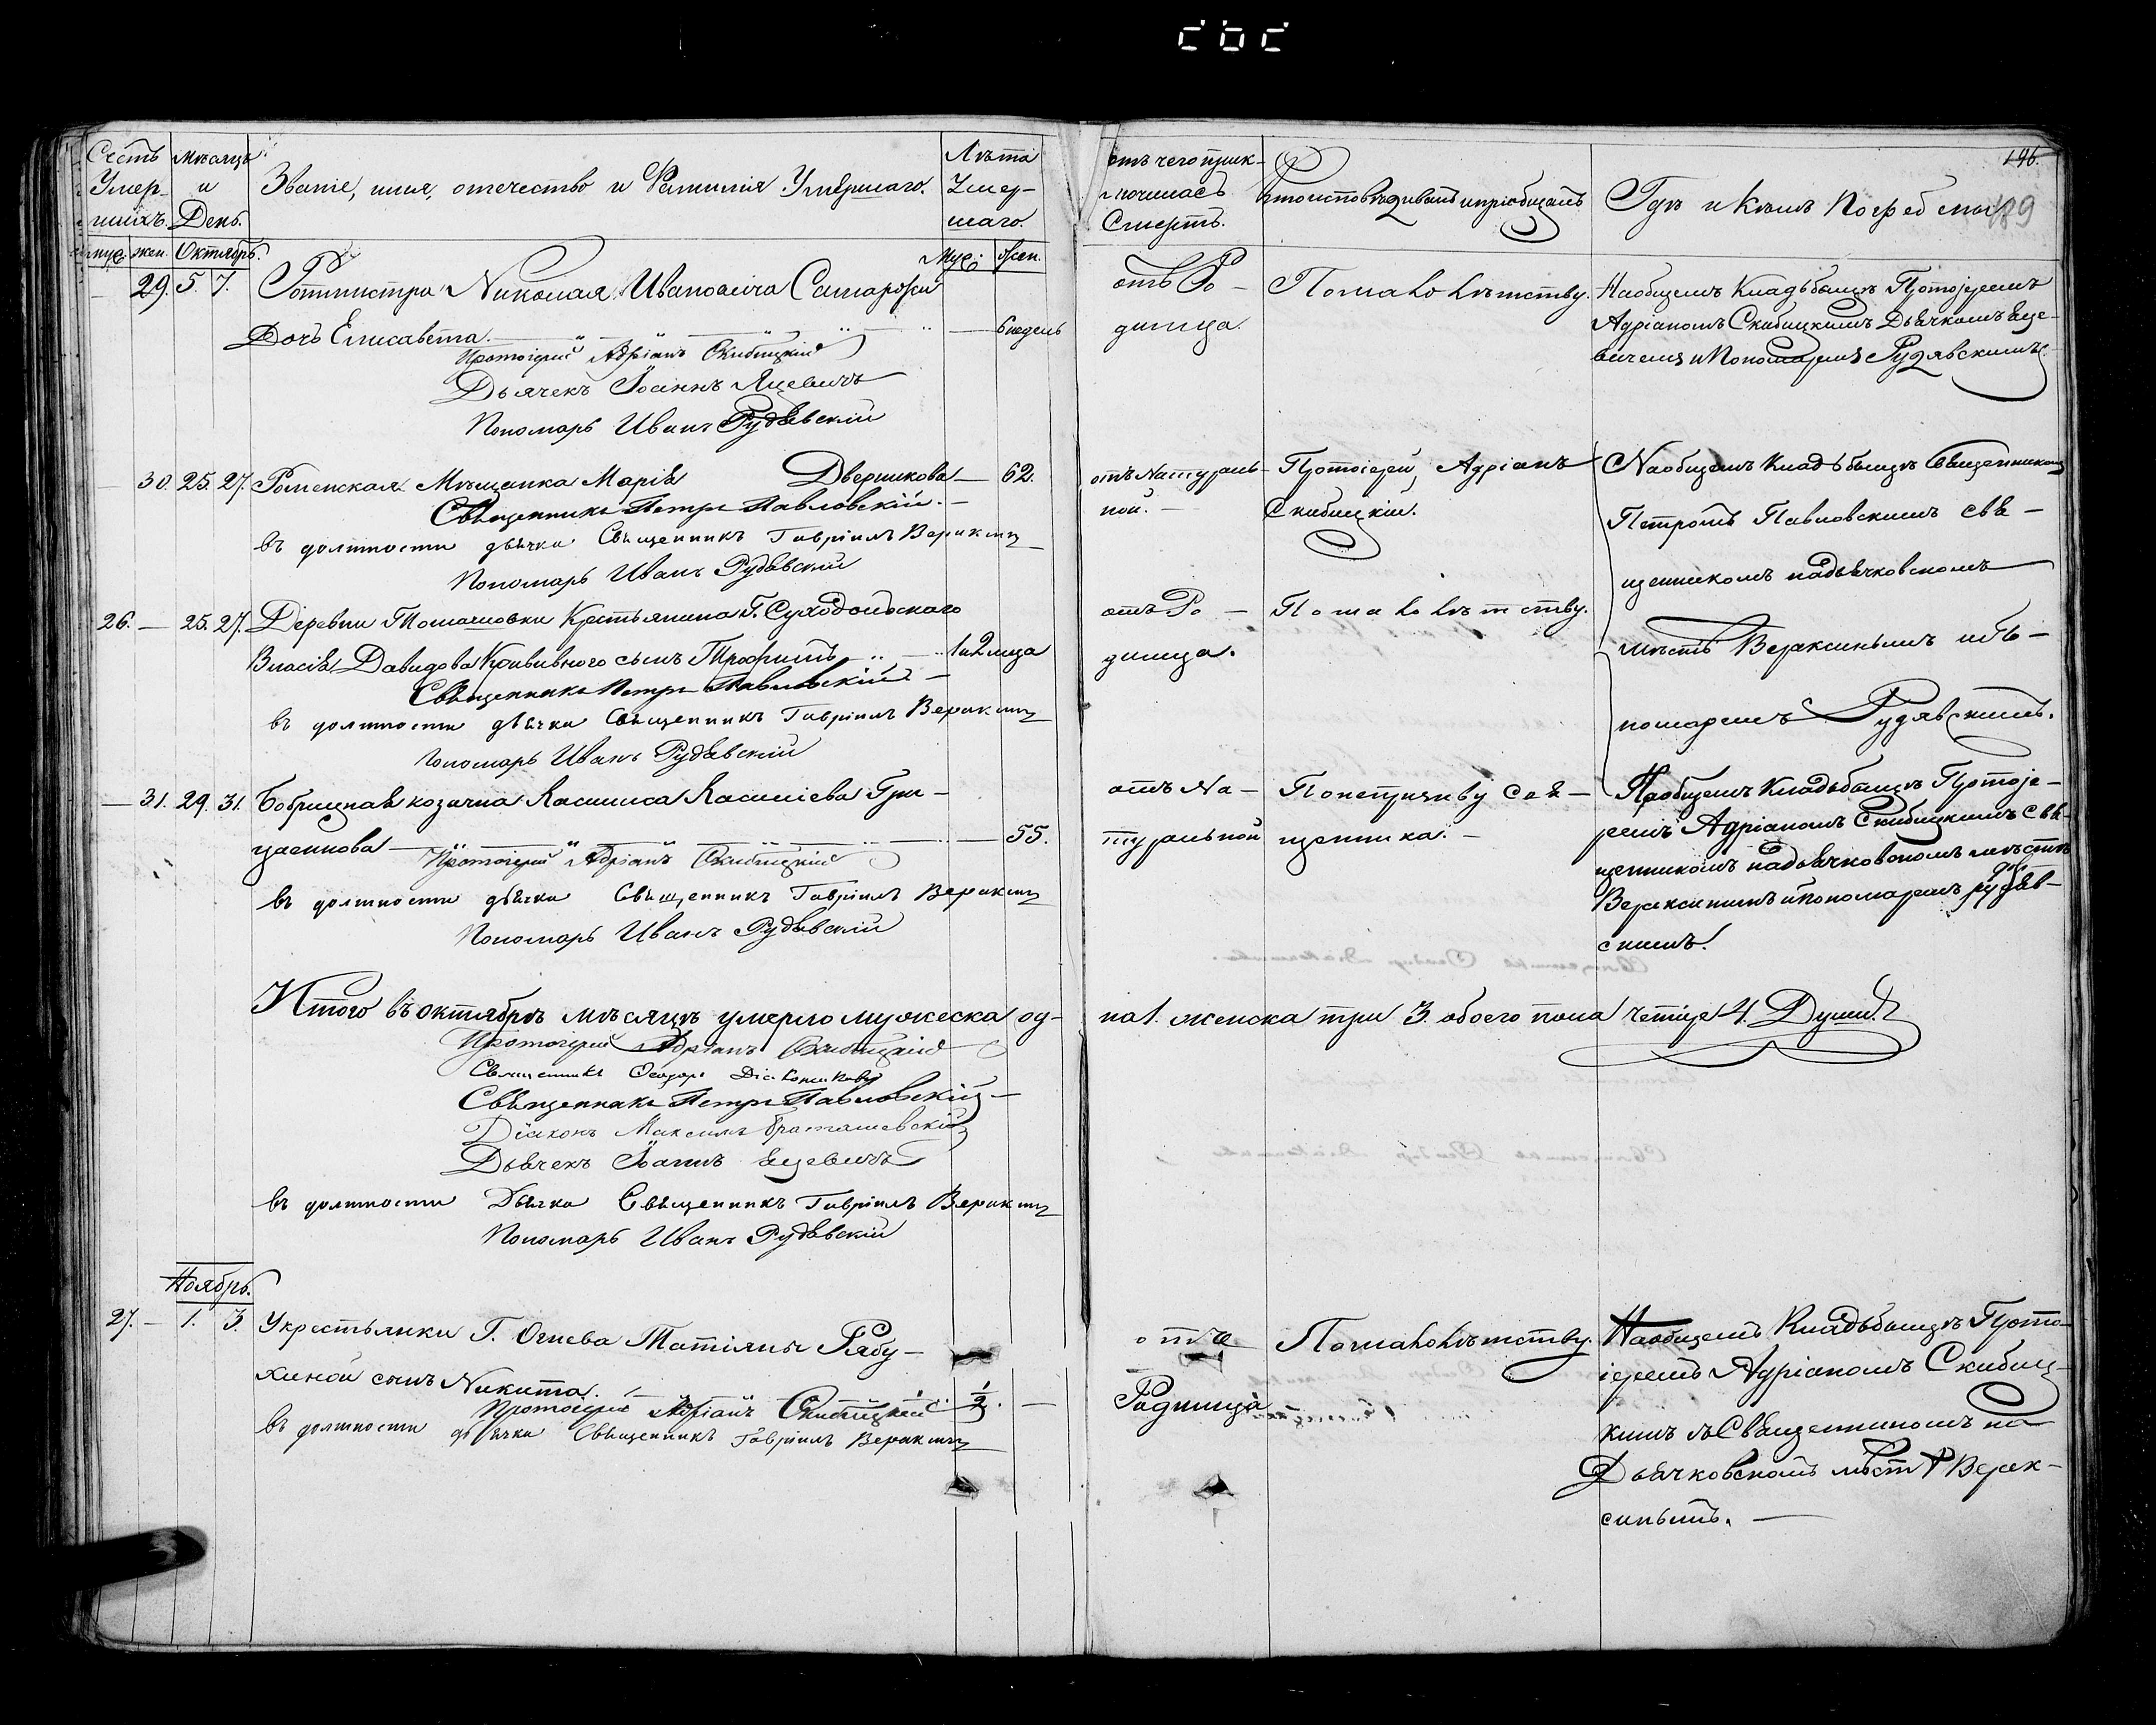 Счетъ Умер- шихъ.
Мѣсяцъ и День.
Званіе, имя, отечество и Фамилія Умершаго.
Лѣта Умер- шаго.
отъ чего прик- лючилась Смерть.
Кто исповѣдивалъ и пріобщалъ
Гдѣ и кѣмъ погребены
196.
189
муж. жен. Октябрь.
Муж. Жен.
29. 5. 7. Ротмистра Николая Ивановича
Дочь Елисавета. 6 недель
Протоіерей Адріанъ Скибицкій
Дьячекъ Іоаннъ Яцевичъ
Пономарь Иванъ Рудявскій
отъ Ро-
димца.
По малолѣтству.
На общемъ кладьбищѣ Протоіереемъ
Адріаномъ Скибицкимъ Дьячкомъ Яце-
вичемъ и Пономаремъ Рудявскимъ.
30. 25. 27. Роменская Мѣщанка Марія Дверникова 62.
Священникъ Петръ Павловскій.
въ должности дьячка Священникъ Гавріилъ Вераксинъ
Пономарь Иванъ Рудявскій
отъ Натураль-
ной.
Протоіерей Адріанъ
Скибицкій.
На общемъ кладьбищѣ Священникомъ
Петромъ Павловскимъ свя-
щенникомъ на дьячковскомъ
мѣстѣ Вераксинымъ и
пономаремъ Рудявскимъ.
26. — 25. 27. Деревни Томашовки Крестьянина Г. Суходольского
Власія Давидова сынъ Трофимъ 1 и 2 мца
Священникъ Петръ Павловскій
въ должности дьячка Священникъ Гавріилъ Вераксинъ
Пономарь Иванъ Рудявскій
отъ Ро-
димца.
По малолѣтству.
— 31. 29. 31. Бобрицкая козачка Васильева Гри-
55.
Протоіерей Адріанъ Скибицкій
въ должности дьячка Священникъ Гавріилъ Вераксинъ
Пономарь Иванъ Рудявскій
отъ На-
туральной
По непризиву Свя-
щенника.
На общемъ кладьбищѣ Протоіе-
реемъ Адріаномъ Скибицкимъ Свя-
щенникомъ на дьячковскомъ мѣстѣ
Вераксинимъ и пономаремъ Рудяв-
скимъ.
Итого въ октябрѣ мѣсяцѣ умерло мужеска од-
на 1. женска три 3. обоего пола четире 4. Души.
Протоіерей Адріанъ Скибицкій
Священникъ Ѳеодоръ
Священникъ Петръ Павловскій
Діаконъ Максимъ
Дьячекъ Іоаннъ Яцевичъ
въ должности Дьячка Священникъ Гавріилъ Вераксинъ
Пономарь Иванъ Рудявскій
Ноябрь.
27. — 1. 3. У крестьянки Г. Огнева Татіяны Рябу-
хиной сынъ Никита. ½. —
Протоіерей Адріанъ Скибицкій
въ должности дьячка Священникъ Гавріилъ Вераксинъ
отъ
Родимца
По малолѣтству.
На общемъ Кладьбищѣ Прото-
іереемъ Адріаномъ Скибиц-
кимъ съ Священникомъ на
Дьячковскомъ мѣстѣ Верак-
синымъ.